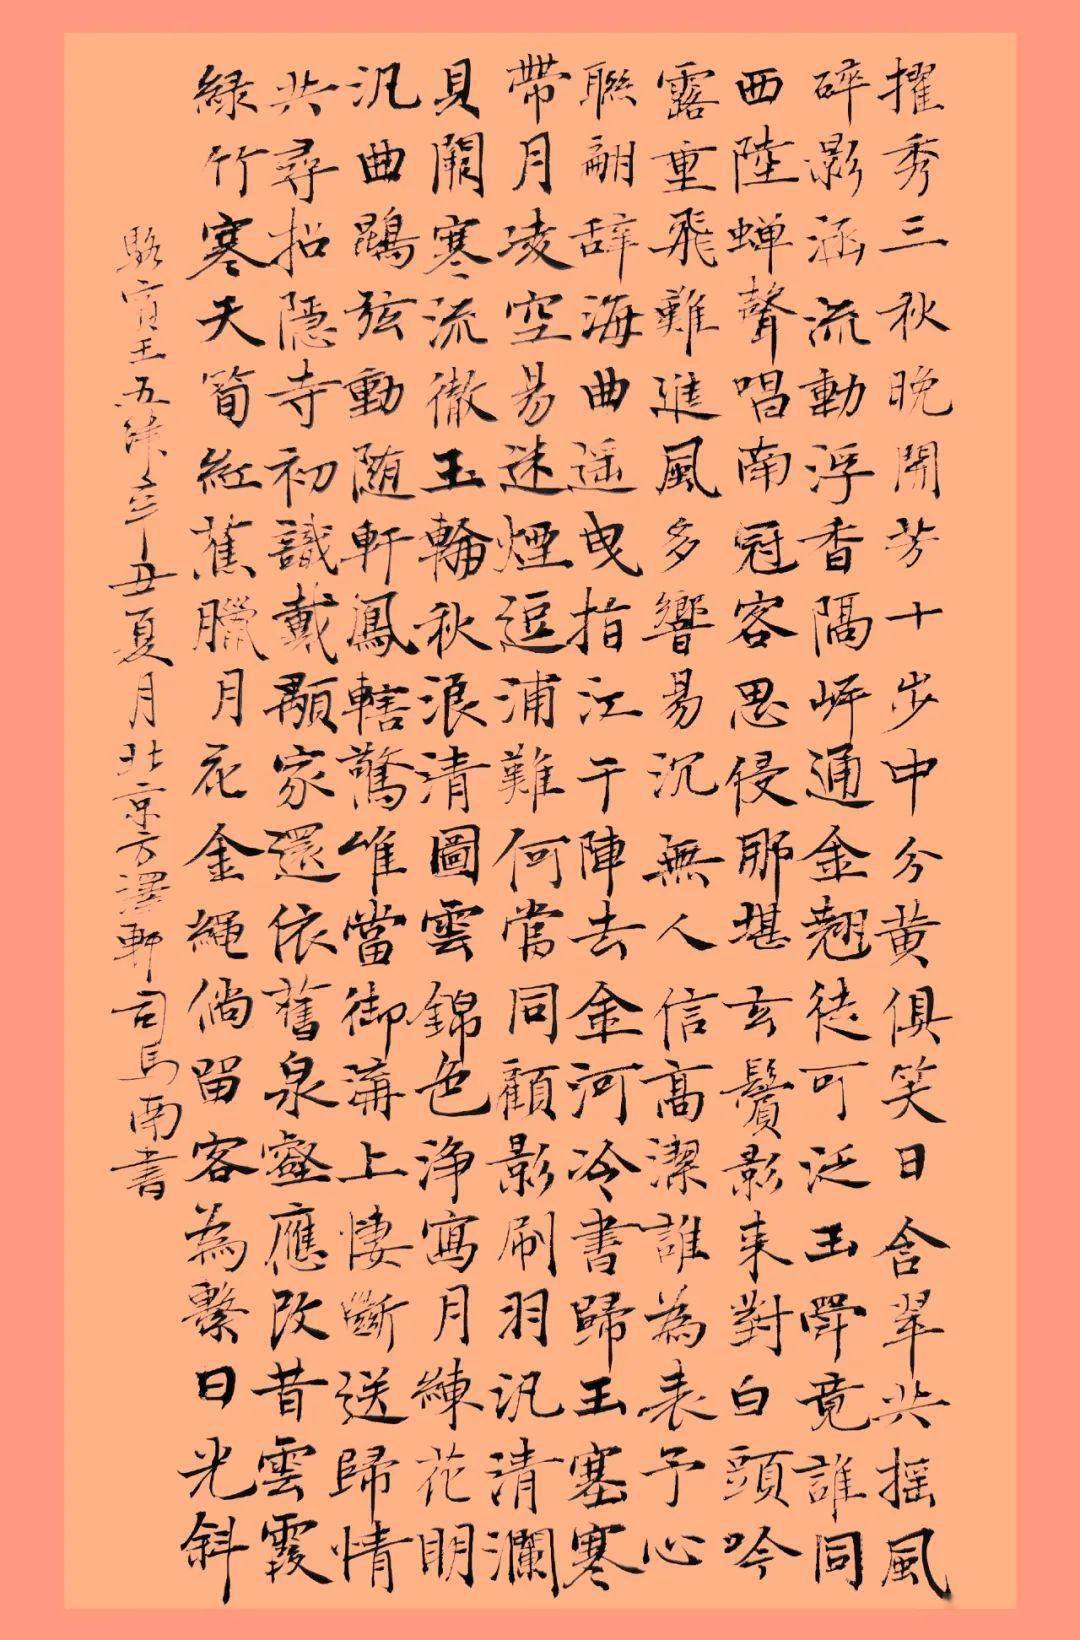 擢秀三秋晚開芳十步中分黄俱笑日含翠共摇風
碎影涵流動浮香隔岸通金翹徒可泛玉斝竟誰同
西陸蝉聲唱南冠客思侵那堪玄鬢影来對白頭吟
露重飛難進風多響易沉無人信高潔誰為表予心
聯翩辞海曲遥曳指江干陣去金河冷書歸玉塞寒
帶月凌空易迷煙逗浦難何當同顧影刷羽汎清瀾
貝闕寒流徹玉輪秋浪清圖雲錦色浄寫月練花明
汎曲鵾弦動随軒鳳轄驚唯當御溝上悽斷送歸情
共尋招隱寺初識戴顒家還依舊泉壑應改昔雲霞
緑竹寒天筍紅蕉臘月花金繩倘留客為繫日光斜
駱賓王五律辛丑夏月北京方澤軒司馬南書